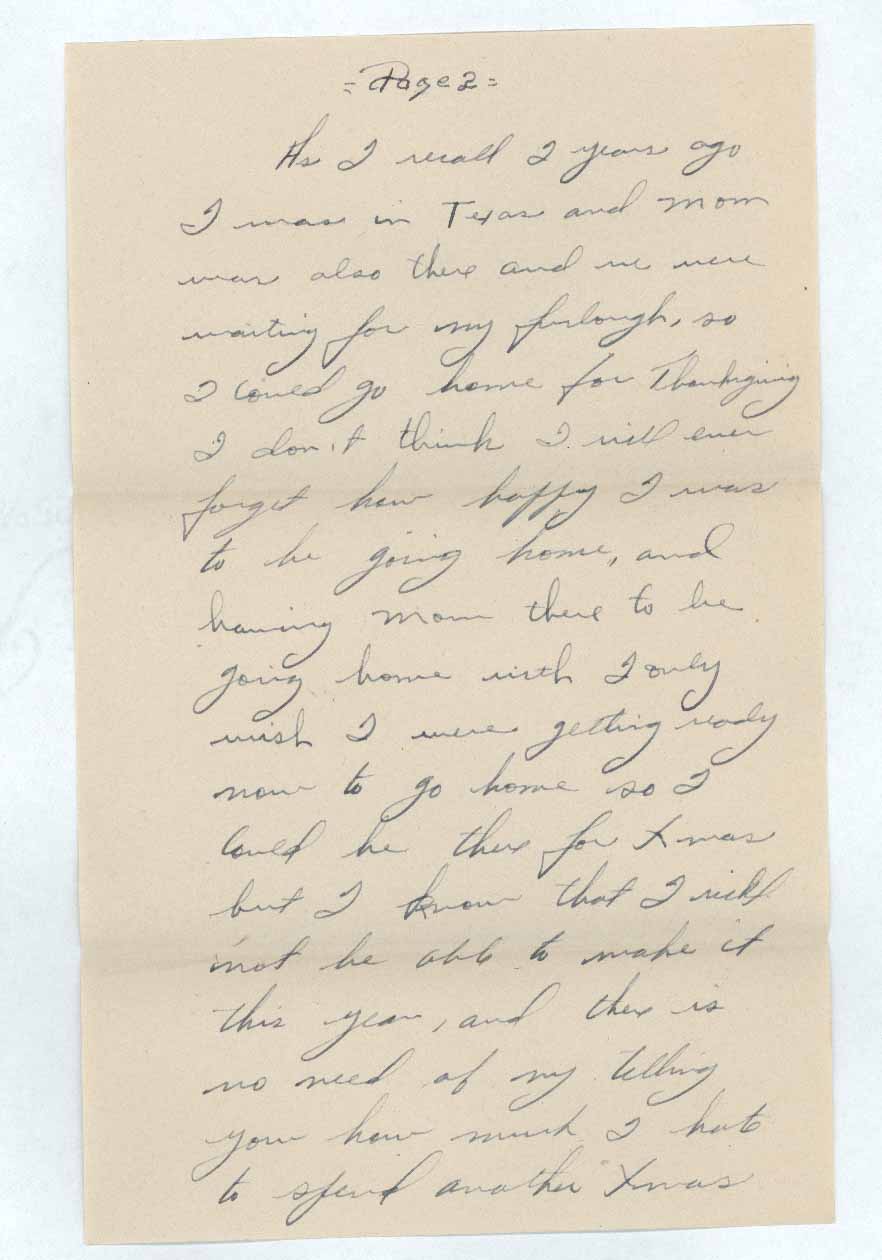 = Page 2 =
As I recall 2 years ago
I was in Texas and Mom
was also there and we were
waiting for my furlough, so
I could go home for Thanksgiving
I don't think I will ever
forget how happy I was
to be going home, and
having Mom there to be
going home with I only
wish I were getting ready
now to go home so I
could be there for Xmas
but I know that I will
not be able to make it
this year, and there is
no need of my telling
you how much I hate
to spend another Xmas